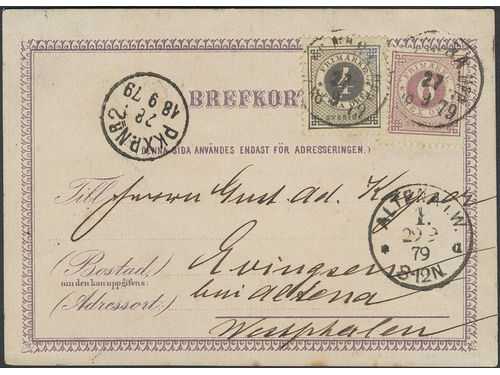 FRIMÄRKE
FRIMÄRKE
27
9 79
PKXP.Nº2.
28
18 9 79
BREFKORT
(DENNA SIDA ANVÄNDES ENDAST FÖR ADRESSERINGEN.)
Till Herrn Gust. Ad.
ALTENA I.W.
1.
29 9
79
8-12N.
(Bostad, Evingsen
om den kan uppgifvas:
(Adressort:) bei Altena
Westphalen